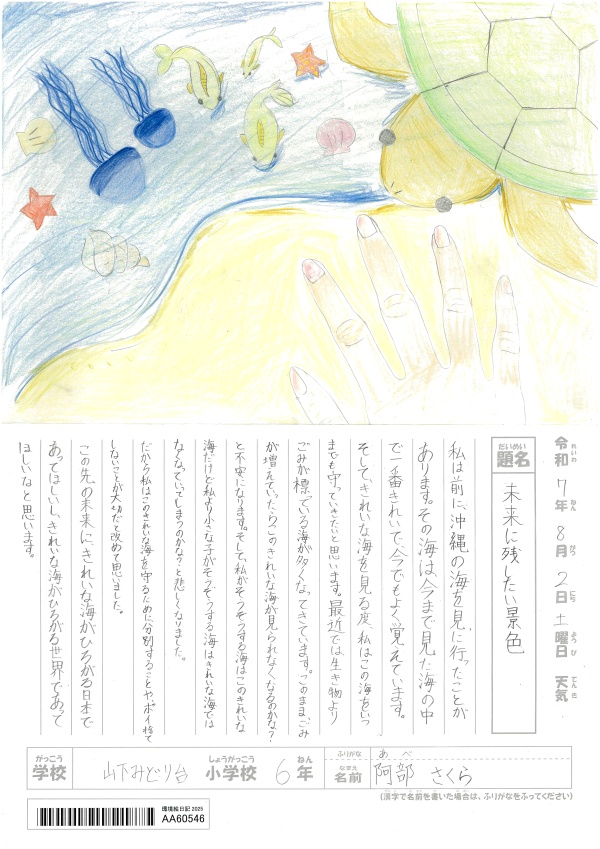 令和7年8月2日土曜日 天気
れいわ ねん がつ にち ようび てんき
だいめい
題名
未来に残したい景色
私は前に、沖縄の海を見に行ったことが
あります。その海は、今まで見た海の中
で一番きれいで、今でもよく覚えています。
そして、きれいな海を見る度、私はこの海をいつ
までも守っていきたいと思います。最近では、生き物より
ごみが漂っている海が多くなってきています。このまま、ごみ
が増えていったら、このきれいな海が見られなくなるのかな?
と不安になります。そして、私がそうぞうする海はこのきれいな
海だけど私より小さな子がそうぞうする海はきれいな海では
なくなっていってしまうのかな?と悲しくなりました。
だから私はこのきれいな海を守るために分別することや、ポイ捨て
しないことが大切だと改めて思いました。
この先の未来に、きれいな海がひろがる日本で
あってほしいし、きれいな海がひろがる世界であって
ほしいなと思います。
がっこう しょうがっこう ねん
学校 山下みどり台 小学校 6年
ふりがな あべ
なまえ
名前 阿部 さくら
(漢字で名前を書いた場合は、ふりがなをふってください)
環境絵日記 2025
AA60546